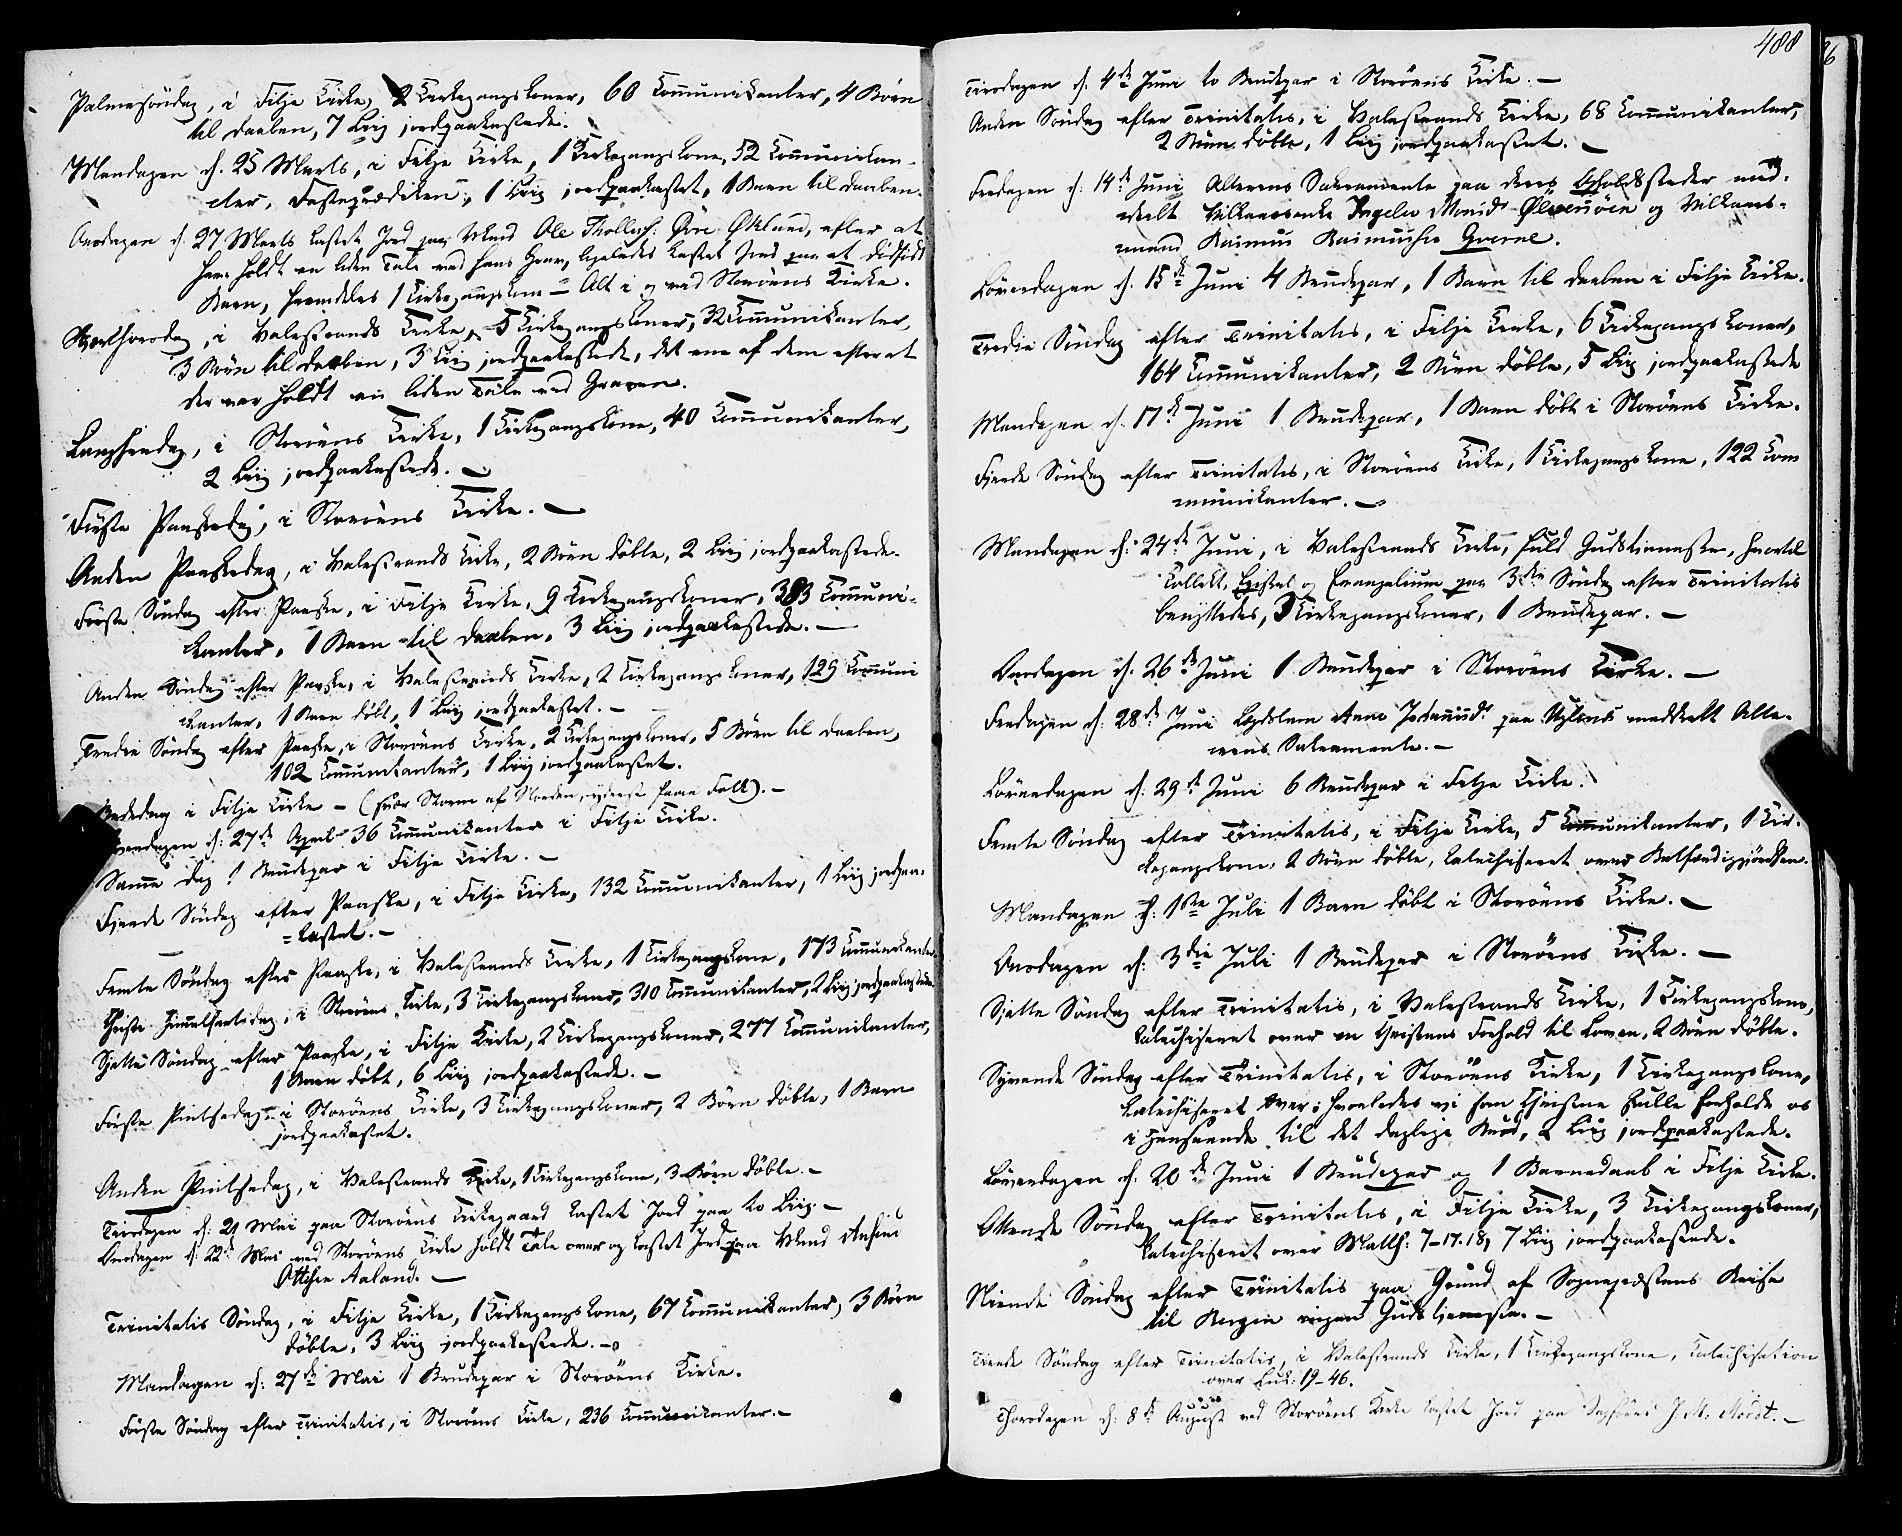 Palmesöndag, i Fitje Kirke, 2 Kirkegangskoner, 60 Communikanter, 4 Börn
til Daaben, 7 Liig jordpaakastede.
Mandagen d. 25 Marts, i Fitje Kirke, 1 Kirkegangskone, 52 Communikan-
ter, Fasteprædiken, 1 Liig jordpaakastet, 1 Barn til Daaben.
Onsdagen d. 27 Marts kastet Jord paa Mand Ole Thollefs: Övre Økland, efter at
have holdt en liden Tale ved hans Grav, ligeledes kastet Jord paa et dödfödt
Barn, fremdeles 1 Kirkegangskone = Alt i og ved Storöens Kirke.
Skjærthorsdag, i Valestrands Kirke, 5 Kirkegangskoner, 32 Communikanter,
3 Börn til Daaben, 3 Liig jordpaakastede, det ene af dem efterat
der var holdt en liden Tale ved Graven.
Langfredag, i Storöens Kirke, 1 Kirkegangskone, 40 Communikanter,
2 Liig jordpaakastede. —
Förste Paaskedag, i Storöens Kirke. —
Anden Paaskedag, i Valestrands Kirke, 2 Börn döbte, 2 Liig jordpaakastede.
Förste Söndag efter Paaske, i Fitje Kirke, 9 Kirkegangskoner, 383 Communi-
kanter, 1 Barn til Daaben, 3 Liig jordpaakastede. —
Anden Söndag efter Paaske, i Valestrands Kirke, 2 Kirkegangskoner, 129 Communi
kanter, 1 Barn döbt, 1 Liig jordpaakastet. —
Tredie Söndag efter Paaske, i Storöens Kirke, 2 Kirkegangskoner, 5 Börn til Daaben,
102 Communikanter, 1 Liig jordpaakastet.
Bededag i Fitje Kirke — (svær Storm af Norden, yderst faae Folk). —
d: 27de April 36 Communikanter i Fitje Kirke.
Samme Dag 1 Brudepar i Fitje Kirke. —
Fjerde Söndag efter Paaske, i Fitje Kirke, 132 Communikanter, 1 Liig jordpaa-
=kastet. —
Femte Söndag efter Paaske, i Valestrands Kirke, 1 Kirkegangskone, 173 Communikanter
Christi Himmelfartsdag, i Storöens Kirke, 3 Kirkegangskoner, 310 Communikanter, 2 Liig jordpaakastede
Sjette Söndag efter Paaske, i Fitje Kirke, 2 Kirkegangskoner, 277 Communikanter,
1 Barn döbt, 6 Liig jordpaakastede. —
Förste Pintsedag i Storöens Kirke, 3 Kirkegangskoner, 2 Börn döbte, 1 Barn
jordpaakastet.
Anden Pintsedag, i Valestrands Kirke, 1 Kirkegangskone, 3 Börn döbte. —
Tirsdagen d: 21 Mai paa Storöens Kirkegaard kastet Jord paa to Liig. —
Onsdagen d: 22 Mai ved Storöens Kirke holdt Tale over og kastet Jord paa Mand
Ottesen Aaland. —
Trinitatis Söndag, i Fitje Kirke, 1 Kirkegangskone, 67 Communikanter, 3 Börn
döbte, 3 Liig jordpaakastede. —
Mandagen d: 27de Mai 1 Brudepar i Storöens Kirke.
Förste Söndag efter Trinitatis, i Storöens Kirke, 236 Communikanter. —
488
Tirsdagen d. 4de Juni to Brudepar i Storöens Kirke. —
Anden Söndag efter Trinitatis, i Valestrands Kirke, 68 Communikanter,
2 Börn döbte, 1 Liig jordpaakastet. —
Fredagen d: 14de Juni Alterens Sakramente paa deres Opholdssteder med-
deelt Vilkaarsenke Ingeler Monsdr og Vilkaars-
mand Rasmus Rasmussen Qverne.
Löverdagen d. 15de Juni 4 Brudepar, 1 Barn til Daaben i Fitje Kirke.
Tredie Söndag efter Trinitatis, i Fitje Kirke, 6 Kirkegangskoner,
164 Communikanter, 2 Börn döbte, 5 Liig jordpaakastede
Mandagen d. 17de Juni 1 Brudepar, 1 Barn döbt i Storöens Kirke.
Fjerde Söndag efter Trinitatis, i Storöens Kirke, 1 Kirkegangskone, 122 Com
munikanter. —
Mandagen d: 24de Juni, i Valestrands Kirke, fuld Gudstjeneste, hvortil
Collekt, Epistel og Evangelium paa 3die Söndag efter Trinitatis
benyttedes, 3 Kirkegangskoner, 1 Brudepar. —
Onsdagen d. 26de Juni 1 Brudepar i Storöens Kirke. —
Fredagen d: 28de Juni Anna paa Nyland meddeelt Alte-
rens Sakramente. —
Löverdagen d: 29de Juni 6 Brudepar i Fitje Kirke.
Femte Söndag efter Trinitatis, i Fitje Kirke, 5 Communikanter, 1 Kir-
kegangskone, 2 Börn döbte, katechiseret over Retfærdiggjörelsen.
Mandagen d: 1ste Juli 1 Barn döbt i Storöens Kirke. —
Onsdagen d: 3die Juli 1 Brudepar i Storöens Kirke. —
Sjette Söndag efter Trinitatis, i Valestrands Kirke, 1 Kirkegangskone,
katechiseret over en Christens Forhold til Loven, 2 Börn döbte.
Syvende Söndag efter Trinitatis, i Storöens Kirke, 1 Kirkegangskone,
katechiseret over: hvorledes vi som Christne skulle forholde os
i Henseende til det daglige Bröd, 2 Liig jordpaakastede.
Löverdagen d. 20de Juni 1 Brudepar og 1 Barnedaab i Fitje Kirke.
Ottende Söndag efter Trinitatis, i Fitje Kirke, 3 Kirkegangskoner,
katechiseret over Matth: 7-17.18, 7 Liig jordpaakastede.
Niende Söndag efter Trinitatis paa Grund af Sognepræstens Reise
til Bergen ingen Gudstjeneste. —
Tiende Söndag efter Trinitatis, i Valestrands Kirke, 1 Kirkegangskone, Katechisation
over Luk: 19-46.
Thorsdagen d: 8de August ved Storöens Kirke kastet Jord paa J. M. —